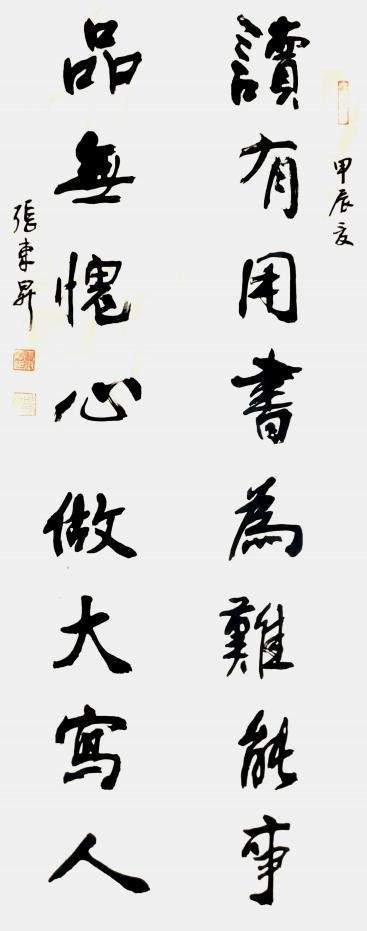 甲辰夏
讀有用書為難能事
品無愧心做大寫人
張東昇